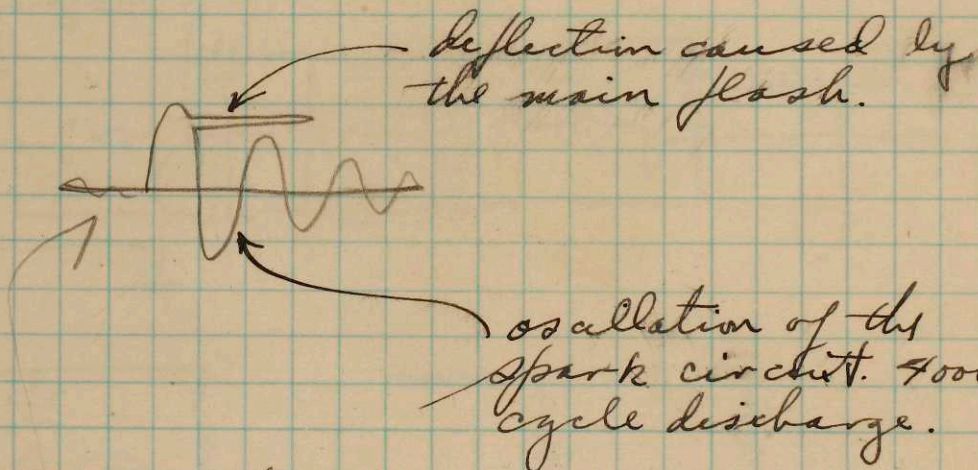 deflection caused by
the main flash.
osallation of the
spark circuit. 4000
cycle discharge.